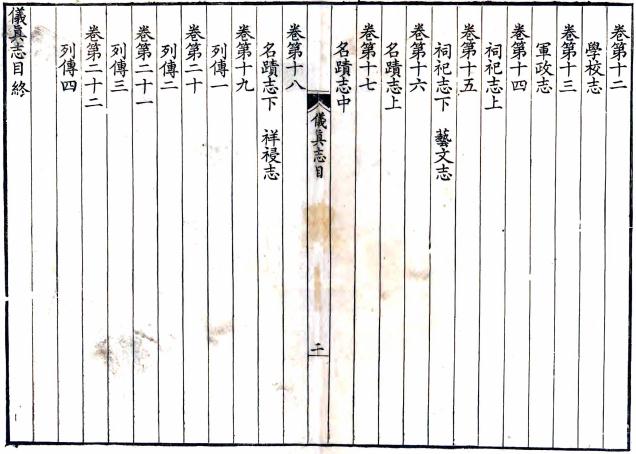 卷第十二
學校志
卷第十三
軍政志
卷第十四
祠祀志上
卷第十五
祠祀志下　藝文志
卷第十六
名蹟志上
卷第十七
名蹟志中
儀眞志目
二
卷第十八
名蹟志下　祥祲志
卷第十九
列傳一
卷第二十
列傳二
卷第二十一
列傳三
卷第二十二
列傳四
儀眞志目終